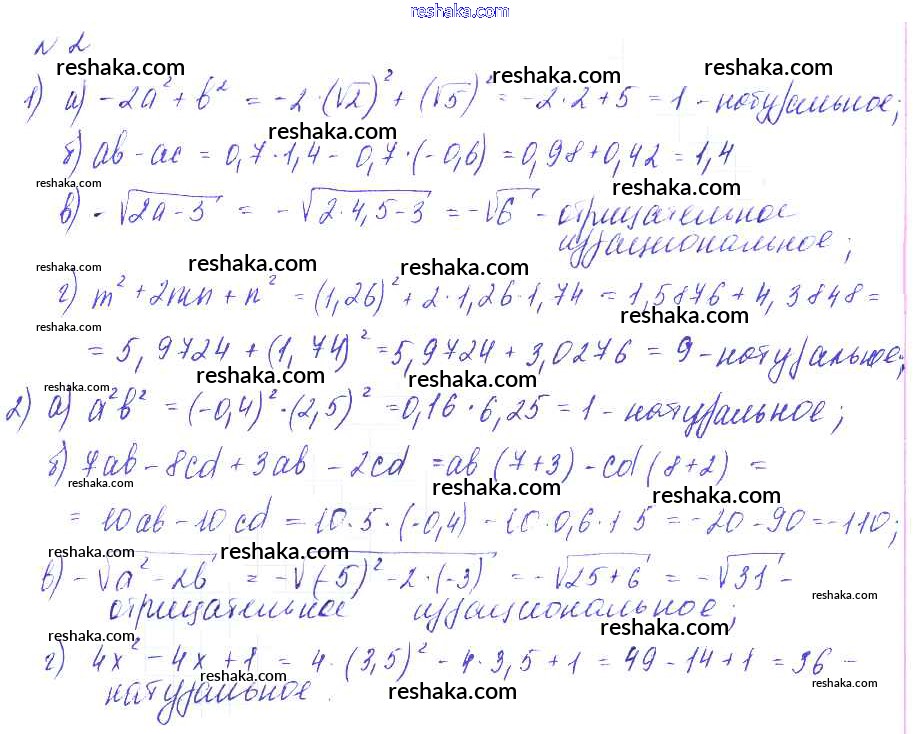 reshaka.com
N 2
reshaka.com reshaka.com reshaka.com
1) а) -2a² + b² = -2·(√2)² + (√5)² = -2·2+5 = 1 - натуральное;
reshaka.com
б) ab - ac = 0,7·1,4 - 0,7·(-0,6) = 0,98+0,42 = 1,4
reshaka.com reshaka.com
в) -√2a-3 = -√2·4,5-3 = -√6 - отрицательное
иррациональное;
reshaka.com reshaka.com reshaka.com
г) m² + 2mn + n² = (1,26)² + 2·1,26·1,74 = 1,5876 + 4,3848 =
reshaka.com reshaka.com
= 5,9724 + (1,74)² = 5,9724 + 3,0276 = 9 - натуральное;
reshaka.com reshaka.com reshaka.com
2) а) a²b² = (-0,4)²·(2,5)² = 0,16·6,25 = 1 - натуральное;
б) 7ab - 8cd + 3ab - 2cd = ab(7+3) - cd(8+2) =
reshaka.com reshaka.com reshaka.com
= 10ab - 10cd = 10·5·(-0,4) - 10·0,6·15 = -20-90 = -110;
reshaka.com reshaka.com
в) -√a² - 2b = -√(-5)² - 2·(-3) = -√25+6 = -√31 -
reshaka.com
отрицательное иррациональное;
reshaka.com reshaka.com
г) 4x² - 4x + 1 = 4·(3,5)² - 4·3,5 + 1 = 49 - 14 + 1 = 36 -
reshaka.com reshaka.com reshaka.com
натуральное.